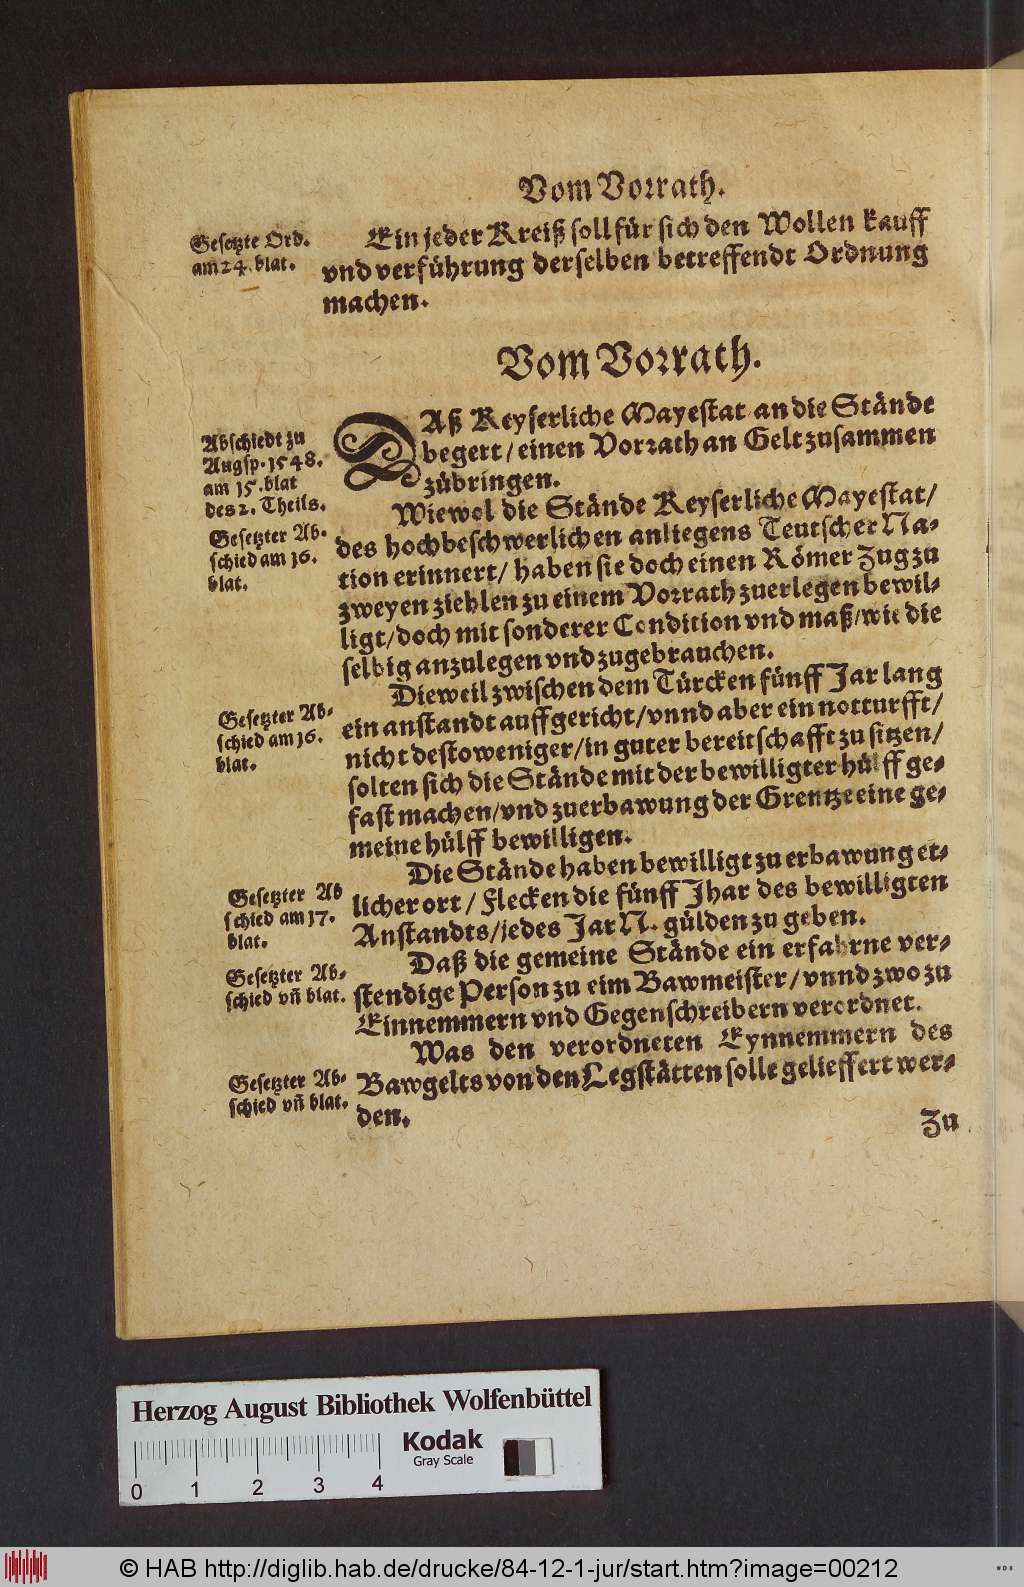 Vom Vorrath.
Gesetzte Ord.
am 24. blat.
Ein jeder Kreiß soll für sich den Wollen kauff
vnd verführung derselben betreffendt Ordnung
machen.
Vom Vorrath.
Abschiedt zu
Augsp. 1548.
am 15. blat
des 2. Theils.
DAß Keyserliche Mayestat an die Stände
begert / einen Vorrath an Gelt zusammen
zübringen.
Gesetzter Ab-
schied am 16.
blat.
Wiewol die Stände Keyserliche Mayestat /
des hochbeschwerlichen anliegens Teutscher Na-
tion erinnert / haben sie doch einen Römer Zug zu
zweyen ziehlen zu einem Vorrath zuerlegen bewil-
ligt / doch mit sonderer Condition vnd maß / wie die
selbig anzulegen vnd zugebrauchen.
Gesetzter Ab-
schied am 16.
blat.
Dieweil zwischen dem Türcken fünff Jar lang
ein anstandt auffgericht / vnnd aber ein notturfft /
nicht destoweniger / in guter bereitschafft zu sitzen /
solten sich die Stände mit der bewilligter hülff ge-
fast machen / vnd zuerbawung der Grentze eine ge-
meine hülff bewilligen.
Gesetzter Ab
schied am 17.
blat.
Die Stände haben bewilligt zu erbawung et-
licher ort / Flecken die fünff Jhar des bewilligten
Anstandts / jedes Jar N. gülden zu geben.
Gesetzter Ab-
schied vñ blat.
Daß die gemeine Stände ein erfahrne ver-
stendige Person zu eim Bawmeister / vnnd zwo zu
Einnemmern vnd Gegenschreibern verordnet.
Gesetzter Ab-
schied vñ blat.
Was den verordneten Eynnemmern des
Bawgelts von den Legstätten solle gelieffert wer-
den.
Zu
Herzog August Bibliothek Wolfenbüttel
Kodak
Gray Scale
0 1 2 3 4
© HAB http://diglib.hab.de/drucke/84-12-1-jur/start.htm?image=00212